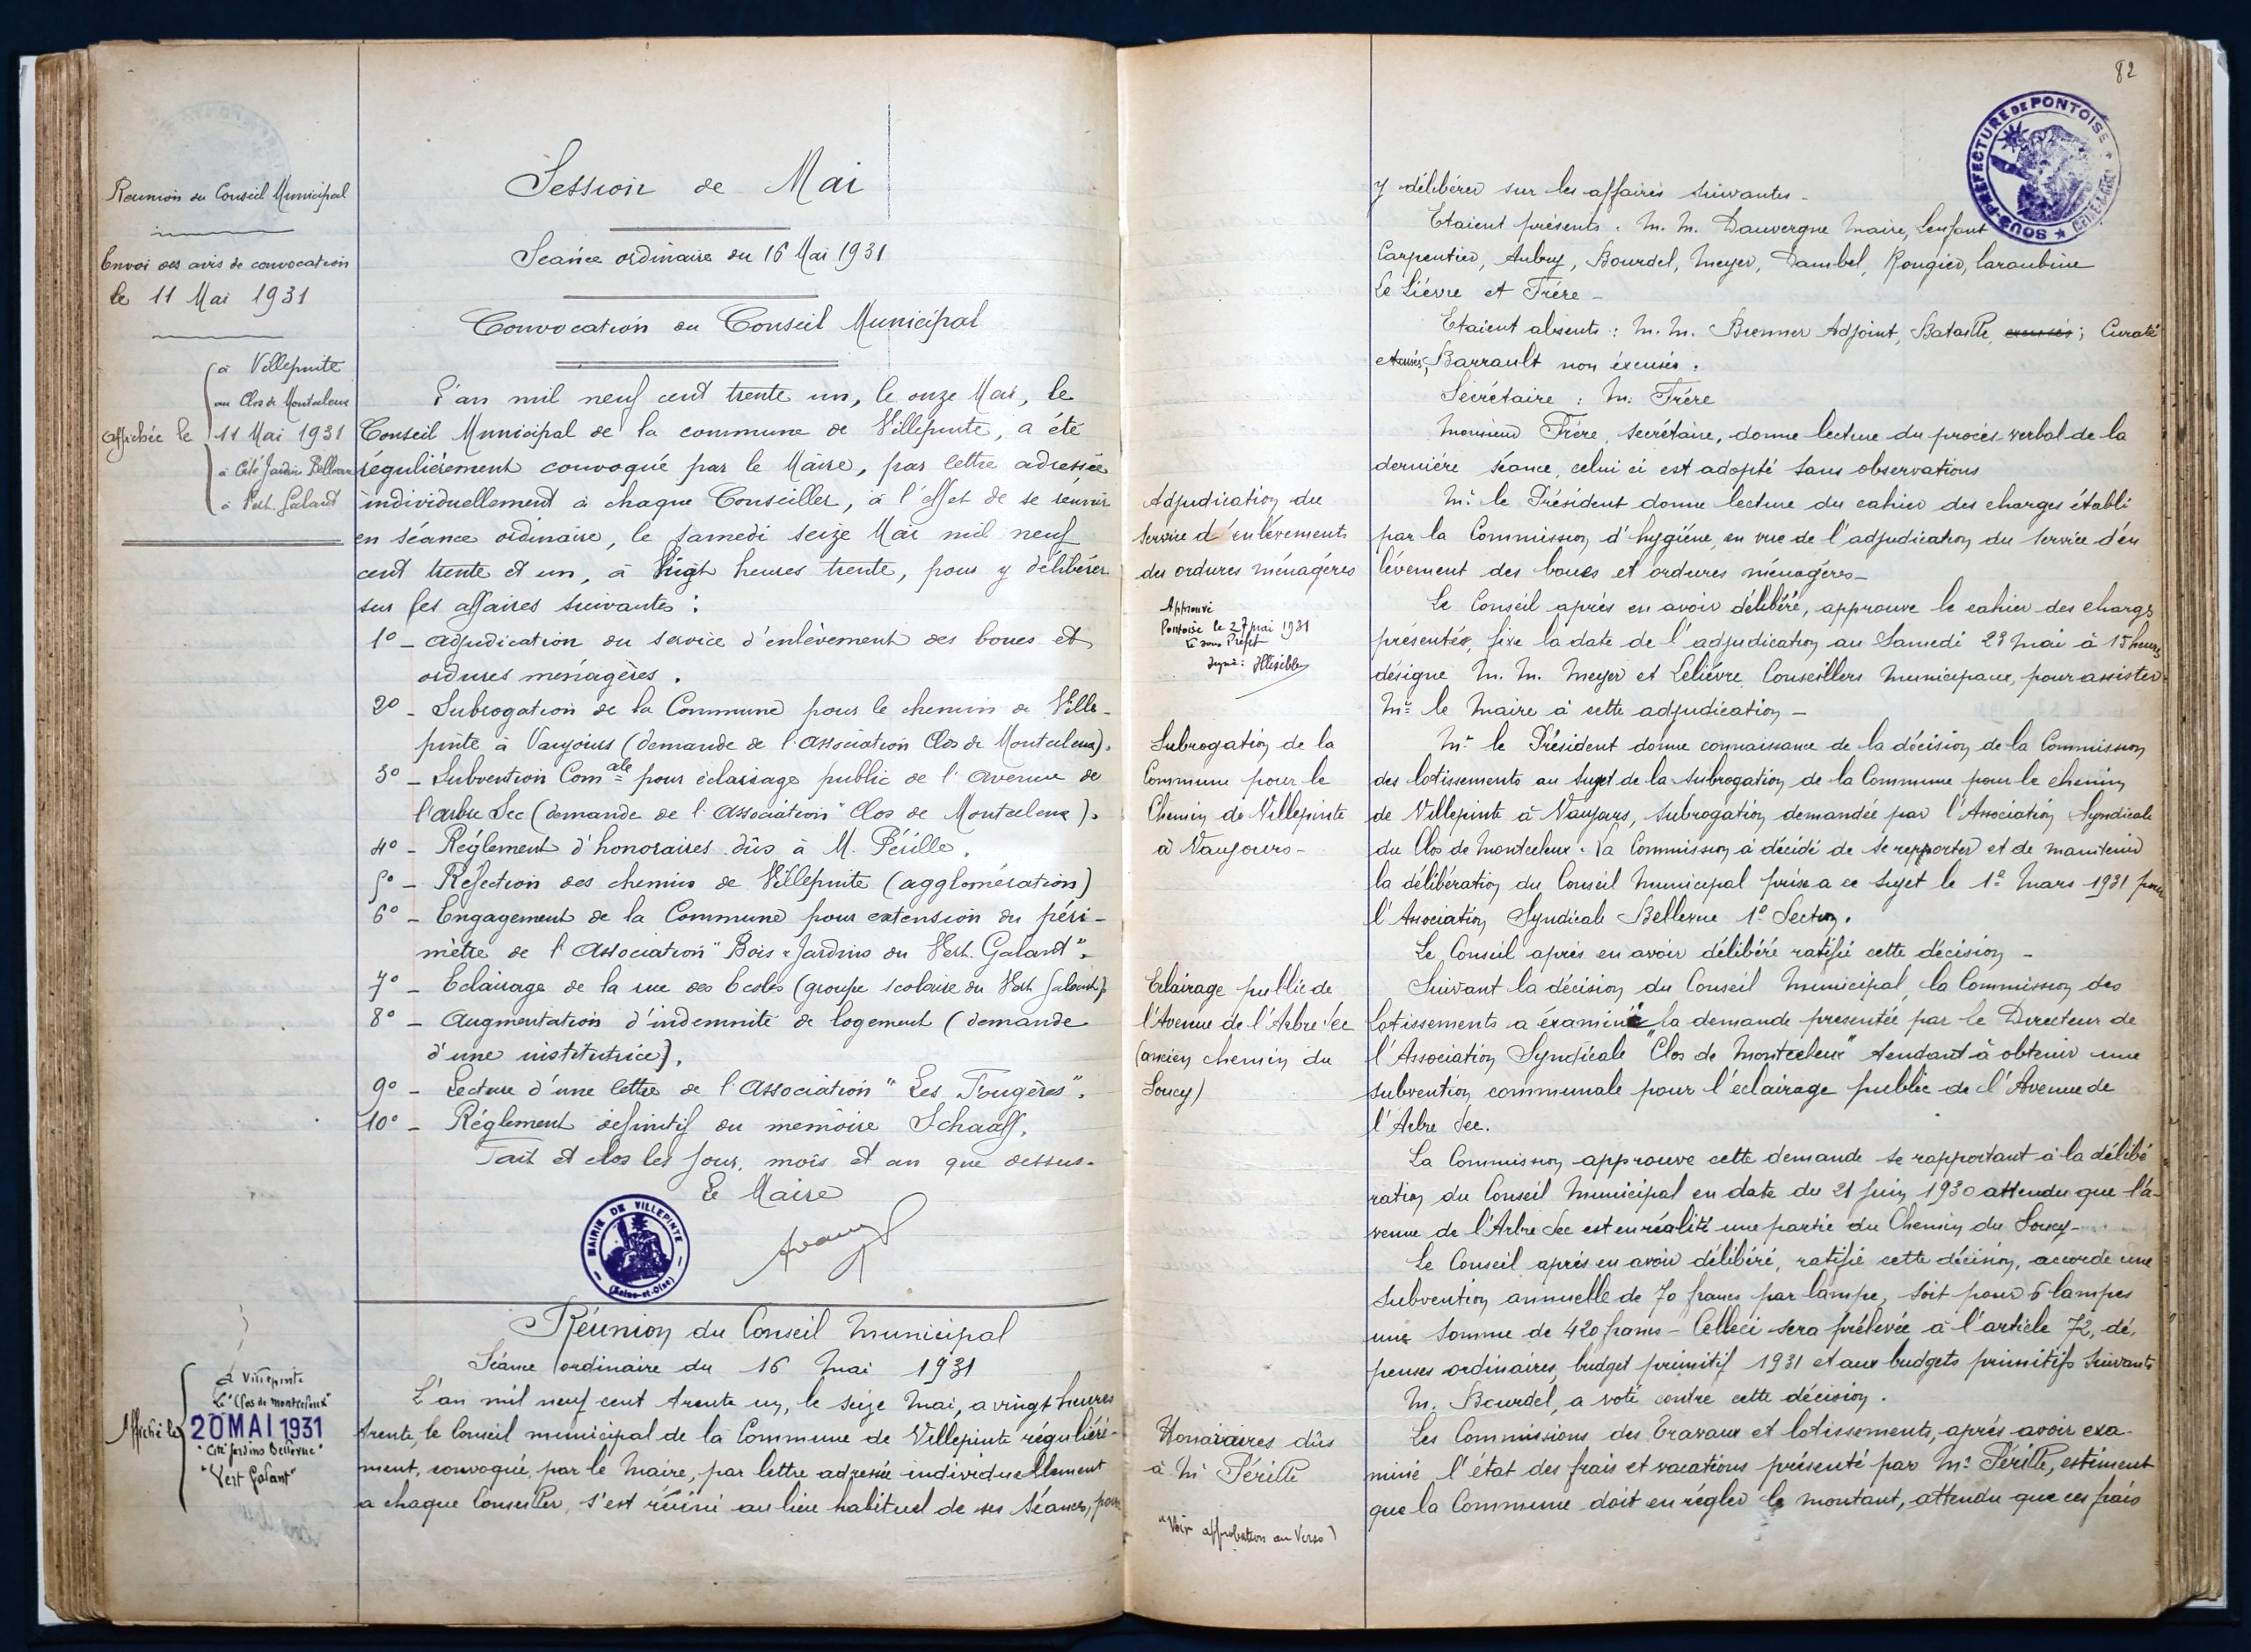 Réunion du Conseil Municipal
Envoi des avis de convocation
le 11 Mai 1931
à Villepinte
au Clos de Montceleux
affichée le 11 Mai 1931
à Cité Jardin Bellevue
à Vert-Galant
Session de Mai
Séance ordinaire du 16 Mai 1931
Convocation du Conseil Municipal
L'an mil neuf cent trente un, le onze Mai, le
Conseil Municipal de la commune de Villepinte, a été
régulièrement convoqué par le Maire, par lettre adressée
individuellement à chaque Conseiller, à l'effet de se réunir
en séance ordinaire, le samedi seize Mai mil neuf
cent trente et un, à vingt heures trente, pour y délibérer
sur les affaires suivantes :
1° - adjudication du service d'enlèvement des boues et
ordures ménagères.
2° - Subrogation de la Commune pour le chemin de Ville-
pinte à Vaujours (demande de l'association Clos de Montceleux).
3° - Subvention Com^ale pour éclairage public de l'avenue de
l'arbre Sec (demande de l'association "Clos de Montceleux).
4° - Réglement d'honoraires dûs à M. Pérille.
5° - Réfection des chemins de Villepinte (agglomération)
6° - Engagement de la Commune pour extension du péri-
mètre de l'association "Bois-Jardins du Vert-Galant".
7° - Eclairage de la rue des Ecoles (groupe scolaire du Vert Galant).
8° - Augmentation d'indemnité de logement (demande
d'une institutrice).
9° - Lecture d'une lettre de l'association "Les Fougères".
10° - Réglement définitif du mémoire Schaaff.
Fait et clos les jour, mois et an que dessus.
Le Maire
MAIRIE DE VILLEPINTE
(Seine-et-Oise)
Réunion du Conseil Municipal
Séance ordinaire du 16 Mai 1931
L'an mil neuf cent trente un, le seize Mai, a vingt heures
trente, le Conseil municipal de la Commune de Villepinte réguliére-
ment, convoqué par le Maire, par lettre adressée individuellement
a chaque Conseiller, s'est réuni au lieu habituel de ses séances, pour
à Villepinte
Le "Clos de Montceleux"
Affiché le 20 MAI 1931
"Cité Jardins Bellevue"
"Vert Galant"
82
SOUS-PREFECTURE DE PONTOISE
y délibérer sur les affaires suivantes -
Etaient présents : M. M. Dauvergne Maire, Lenfant
Carpentier, Aubry, Bourdel, Meyer, Dambel, Rougier, Laroubine
Le Liévre et Frére -
Etaient absents : M. M. Brenner Adjoint, Bataille, excusés ; Curaté
excusés, Barrault non éxcusés.
Secrétaire : M. Frére
Monsieur Frére, secrétaire, donne lecture du procés-verbal de la
derniére séance, celui ci est adopté sans observations
Adjudication du
service d'enlévements
des ordures ménagéres
Approuvé
Pontoise le 27 mai 1931
Le sous Préfet
signé : Illisible
M^r le Président donne lecture du cahier des charges établi
par la Commission d'hygiéne, en vue de l'adjudication du service d'en
lévement des boues et ordures ménagéres -
Le Conseil aprés en avoir délibéré, approuve le cahier des charges
présentés, fixe la date de l'adjudication au Samedi 23 Mai à 15 heures
désigne M. M. Meyer et Leliévre Conseillers Municipaux, pour assister
M^r le Maire à cette adjudication -
Subrogation de la
Commune pour le
Chemin de Villepinte
à Vaujours -
M^r le Président donne connaissance de la décision de la Commission
des lotissements au sujet de la subrogation de la Commune pour le chemin
de Villepinte à Vaujours, subrogation demandée par l'Association Syndicale
du Clos de Montceleux. La Commission a décidé de se repporter et de maintenir
la délibération du Conseil Municipal prise a ce sujet le 1° Mars 1931 pour
l'Association Syndicale Bellevue 1° Section.
Le Conseil aprés en avoir délibéré ratifié cette décision -
Eclairage public de
l'Avenue de l'Arbre sec
(ancien chemin du
Soucy)
Suivant la décision du Conseil Municipal, la Commission des
Lotissements a éxaminé la demande presentée par le Directeur de
l'Association Syndicale "Clos de Montceleux" tendant à obtenir une
subvention communale pour l'éclairage public de l'Avenue de
l'Arbre Sec.
La Commission approuve cette demande se rapportant à la délibé
ration du Conseil Municipal en date du 21 Juin 1930 attendu que l'a-
venue de l'Arbre Sec est en réalité une partie du Chemin du Soucy -
Le Conseil aprés en avoir délibéré, ratifié cette décision, accorde une
subvention annuelle de 70 francs par lampe, soit pour 6 lampes
une somme de 420 francs - Celleci sera prélevée à l'article 72, dé,
penses ordinaires, budget primitif 1931 et aux budgets primitifs suivants
M. Bourdel, a voté contre cette décision.
Honoraires dûs
à M^r Pérille
"Voir approbation au Verso)
Les Commissions des travaux et lotissements, aprés avoir exa-
miné l'état des frais et vacations présenté par M^r Pérille, estiment
que la Commune doit en régler le montant, attendu que ces frais